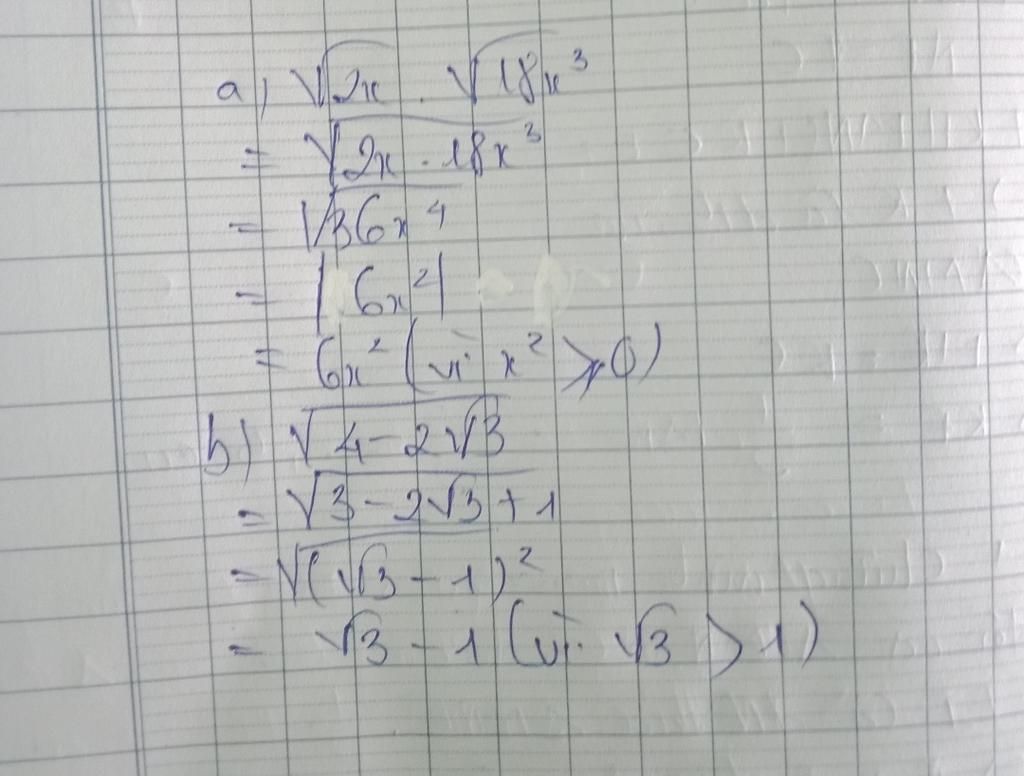 a) √2x . √18x³
= √2x . 18x³
= √36x⁴
= |6x²|
= 6x² (vì x² ≥ 0)
b) √4 - 2√3
= √3 - 2√3 + 1
= √(√3 - 1)²
= √3 - 1 (vì √3 > 1)